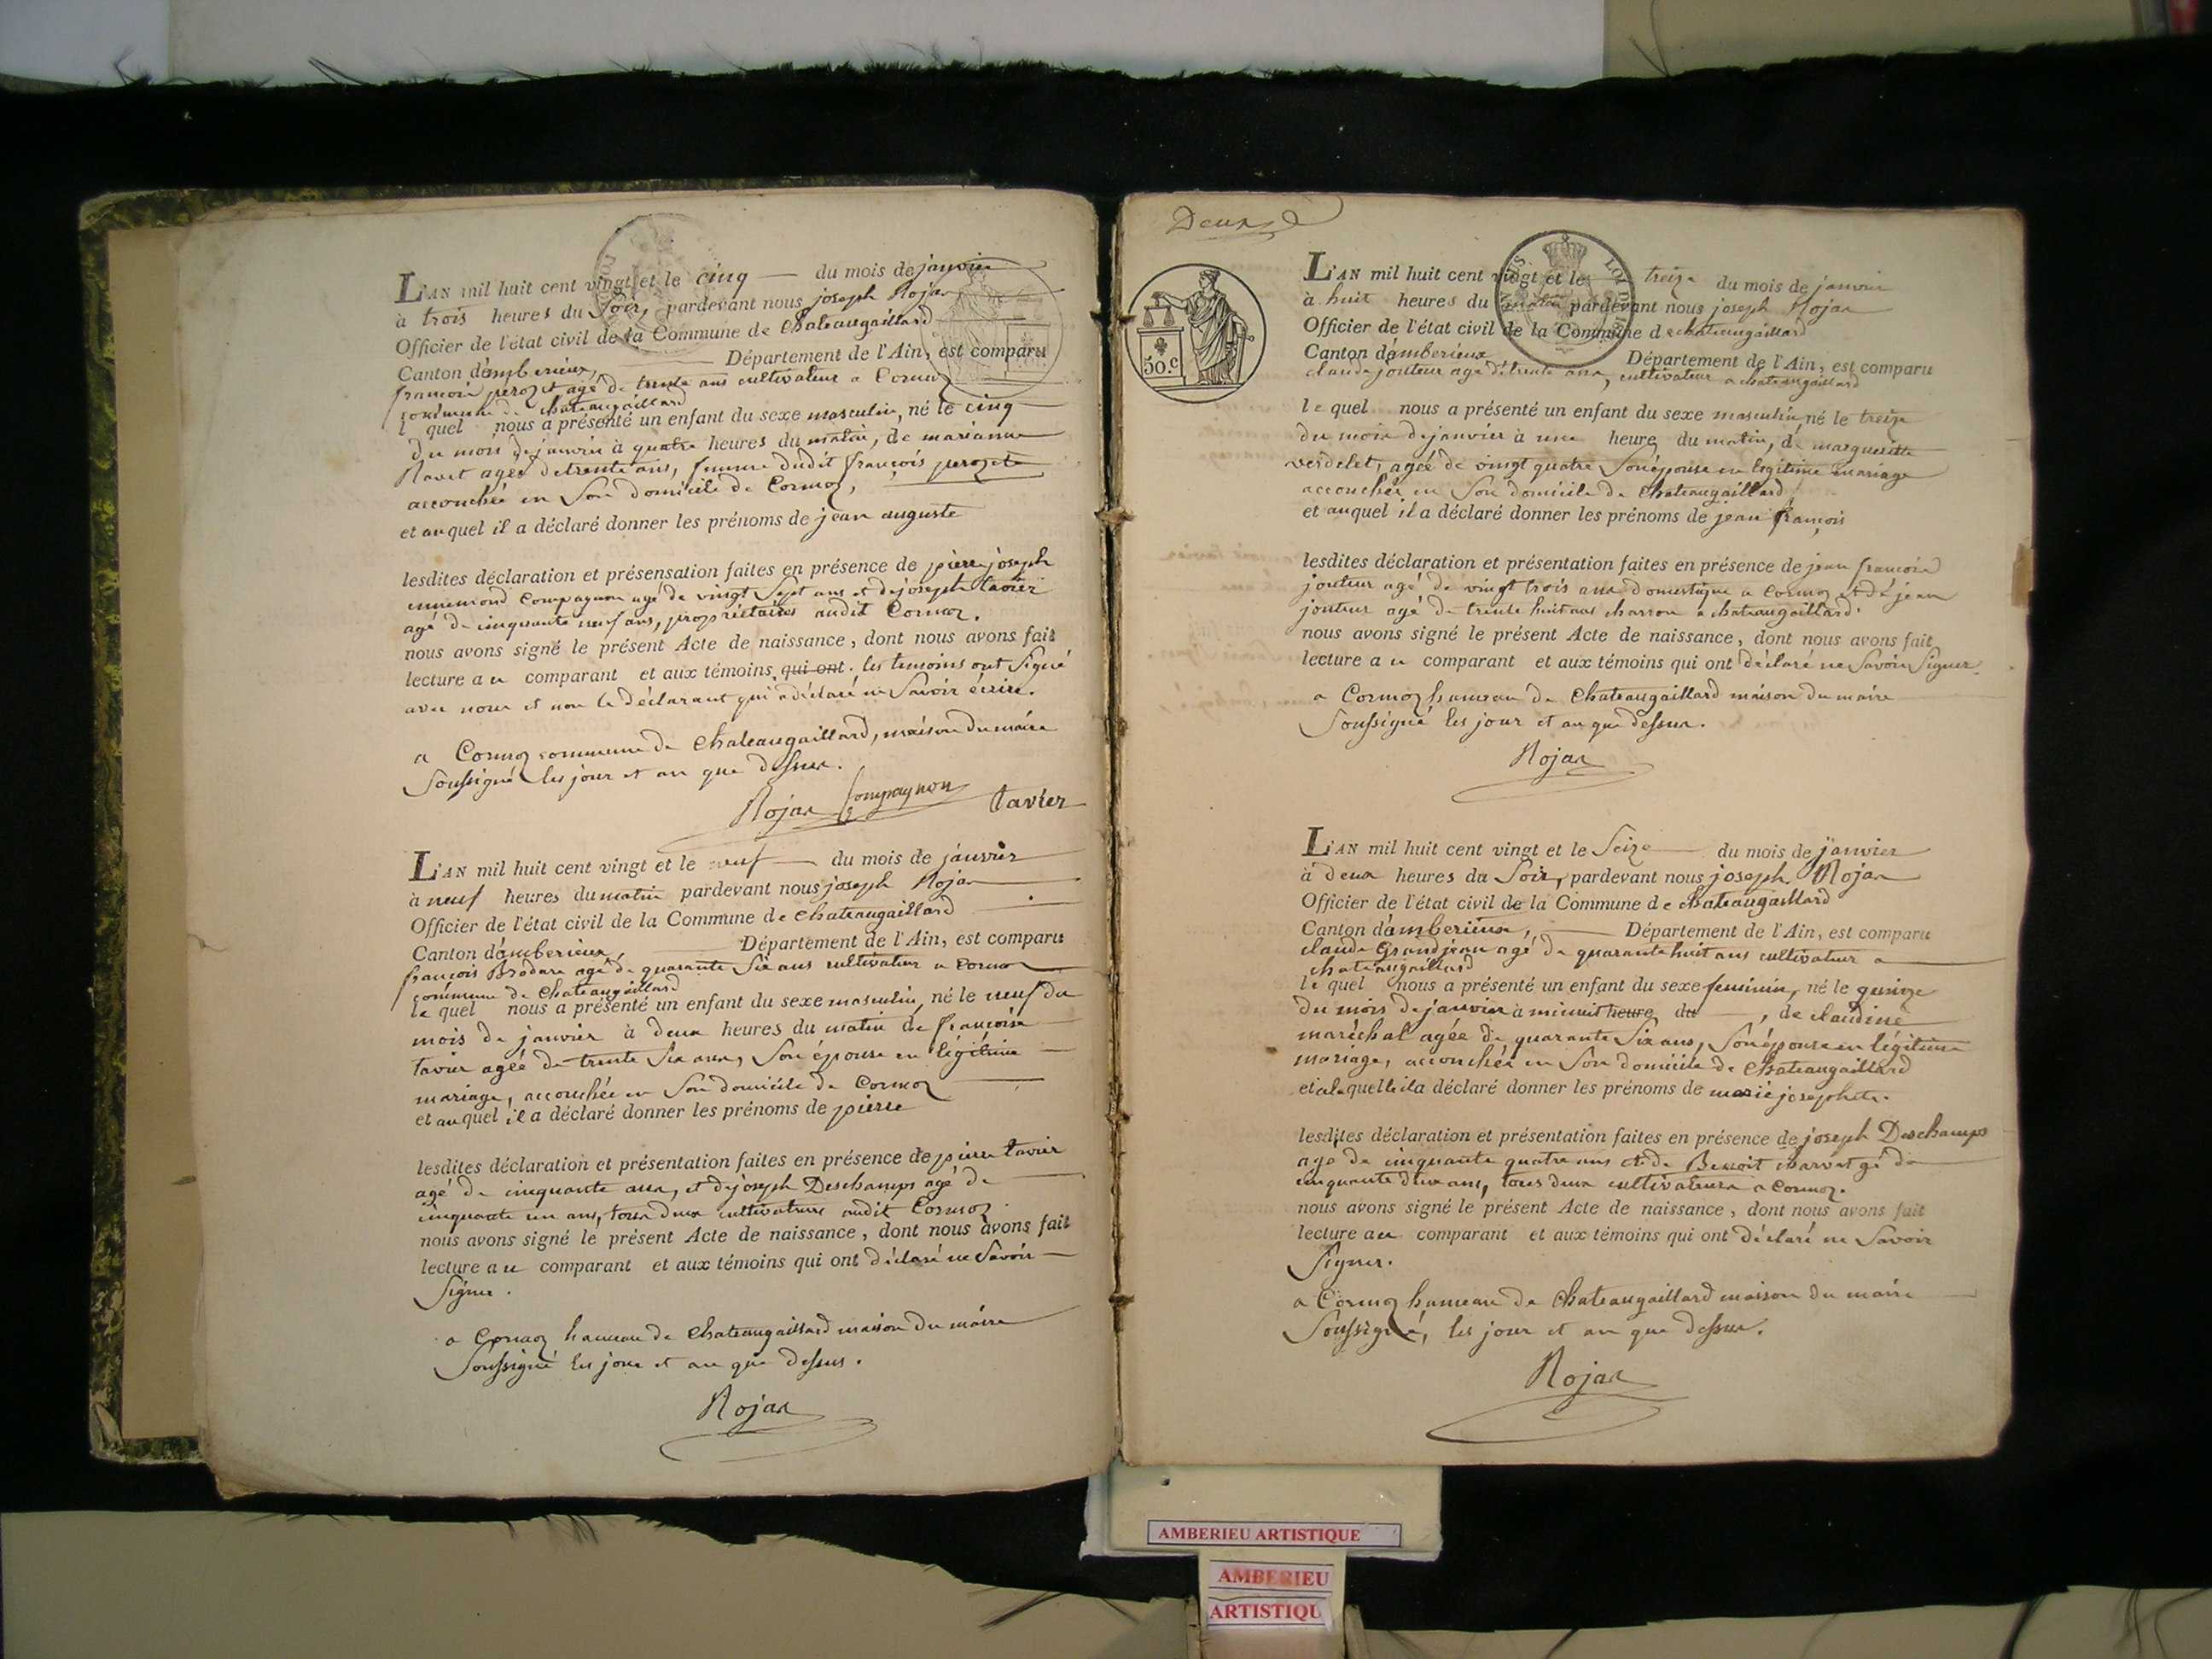 L'AN mil huit cent vingt et le cinq du mois de janvier
à trois heures du soir, pardevant nous joseph Rojat
Officier de l'état civil de la Commune de Chateaugaillard
Canton d'amberieux, Département de l'Ain, est comparu
françois perozet agé de trente ans cultivateur a Cormoz
commune de Chateaugaillard
l quel nous a présenté un enfant du sexe masculin, né le cinq
du mois de janvier à quatre heures du matin, de marianne
Ravet agée de trente ans, femme dudit françois perozet
accouchée en son domicile de Cormoz,
et auquel il a déclaré donner les prénoms de jean auguste
lesdites déclaration et présensation faites en présence de pierre joseph
ennemond Compagnon agé de vingt sept ans et de joseph tavier
agé de cinquante neuf ans, propriétaires audit Cormoz.
nous avons signé le présent Acte de naissance, dont nous avons fait
lecture au comparant et aux témoins qui ont. les temoins ont signé
avec nous et non le déclarant qui a déclaré ne savoir écrire.
a Cormoz commune de Chateaugaillard, maison du maire
soussigné les jour et an que dessus.
Rojat Compagnon tavier
L'AN mil huit cent vingt et le neuf du mois de janvier
à neuf heures du matin pardevant nous joseph Rojat
Officier de l'état civil de la Commune de Chateaugaillard
Canton d'amberieux, Département de l'Ain, est comparu
françois Brodare agé de quarante six ans cultivateur a Cormoz
commune de Chateaugaillard
le quel nous a présenté un enfant du sexe masculin, né le neuf du
mois de janvier à deux heures du matin de françoise
tavier agée de trente six ans, son épouse en légitime
mariage, accouchée en son domicile de Cormoz
et auquel il a déclaré donner les prénoms de pierre
lesdites déclaration et présentation faites en présence de pierre tavier
agé de cinquante ans, et de joseph Deschamps agé de
cinquante un ans, tous deux cultivateurs audit Cormoz
nous avons signé le présent Acte de naissance, dont nous avons fait
lecture au comparant et aux témoins qui ont déclaré ne savoir
signer.
a Cormoz hameau de Chateaugaillard maison du maire
soussigné les jour et an que dessus.
Rojat
Deux
50.c
L'AN mil huit cent vingt et le treize du mois de janvier
à huit heures du matin pardevant nous joseph Rojat
Officier de l'état civil de la Commune de chateaugaillard
Canton d'amberieux Département de l'Ain, est comparu
claude jouteur agé de trente ans, cultivateur a chateaugaillard
le quel nous a présenté un enfant du sexe masculin, né le treize
du mois de janvier à une heure du matin, de marguerite
verdelet, agée de vingt quatre son épouse en légitime mariage
accouchée en son domicile de Chateaugaillard
et auquel il a déclaré donner les prénoms de jean françois
lesdites déclaration et présentation faites en présence de jean françois
jouteur agé de vingt trois ans domestique a Cormoz et de jean
jouteur agé de trente huit ans charron a chateaugaillard.
nous avons signé le présent Acte de naissance, dont nous avons fait
lecture au comparant et aux témoins qui ont déclaré ne savoir signer
a Cormoz hameau de Chateaugaillard maison du maire
soussigné les jour et an que dessus.
Rojat
L'AN mil huit cent vingt et le seize du mois de janvier
à deux heures du soir, pardevant nous joseph Rojat
Officier de l'état civil de la Commune de chateaugaillard
Canton d'amberieux, Département de l'Ain, est comparu
claude Grandjean agé de quarante huit ans cultivateur a
chateaugaillard
le quel nous a présenté un enfant du sexe feminin, né le quinze
du mois de janvier à minuit heure du , de claudine
maréchal agée de quarante six ans, son épouse en légitime
mariage, accouchée en son domicile de Chateaugaillard
et alaquelle il a déclaré donner les prénoms de marie josephete.
lesdites déclaration et présentation faites en présence de joseph Deschamps
agé de cinquante quatre ans et de Benoit charvet gé de
cinquante deux ans, tous deux cultivateurs a Cormoz.
nous avons signé le présent Acte de naissance, dont nous avons fait
lecture au comparant et aux témoins qui ont déclaré ne savoir
signer.
a Cormoz hameau de Chateaugaillard maison du maire
soussigné, les jour et an que dessus.
Rojat
AMBERIEU ARTISTIQUE
AMBERIEU
ARTISTIQU